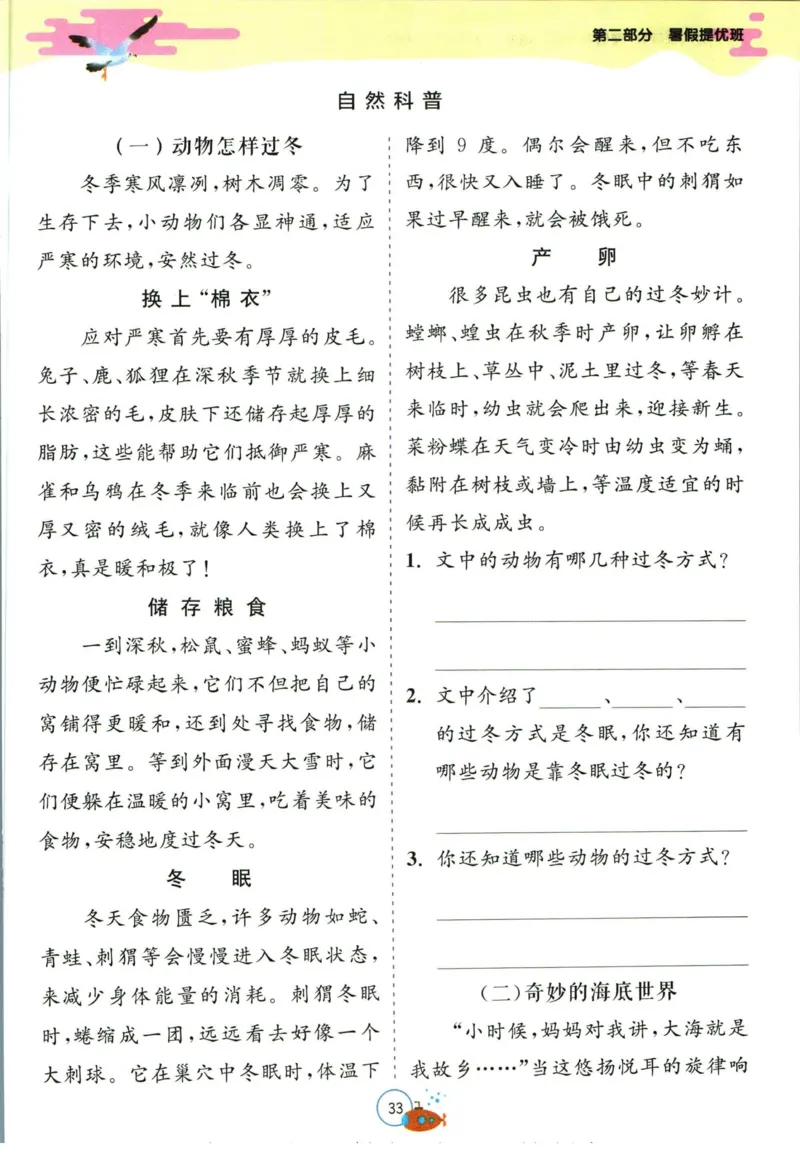 第二部分 暑假提优班
自然科普
（一）动物怎样过冬
冬季寒风凛冽，树木凋零。为了
生存下去，小动物们各显神通，适应
严寒的环境，安然过冬。
换上“棉衣”
应对严寒首先要有厚厚的皮毛。
兔子、鹿、狐狸在深秋季节就换上细
长浓密的毛，皮肤下还储存起厚厚的
脂肪，这些能帮助它们抵御严寒。麻
雀和乌鸦在冬季来临前也会换上又
厚又密的绒毛，就像人类换上了棉
衣，真是暖和极了！
储存粮食
一到深秋，松鼠、蜜蜂、蚂蚁等小
动物便忙碌起来，它们不但把自己的
窝铺得更暖和，还到处寻找食物，储
存在窝里。等到外面漫天大雪时，它
们便躲在温暖的小窝里，吃着美味的
食物，安稳地度过冬天。
冬 眠
冬天食物匮乏，许多动物如蛇、
青蛙、刺猬等会慢慢进入冬眠状态，
来减少身体能量的消耗。刺猬冬眠
时，蜷缩成一团，远远看去好像一个
大刺球。它在巢穴中冬眠时，体温下
降到 9 度。偶尔会醒来，但不吃东
西，很快又入睡了。冬眠中的刺猬如
果过早醒来，就会被饿死。
产 卵
很多昆虫也有自己的过冬妙计。
螳螂、蝗虫在秋季时产卵，让卵孵在
树枝上、草丛中、泥土里过冬，等春天
来临时，幼虫就会爬出来，迎接新生。
菜粉蝶在天气变冷时由幼虫变为蛹，
黏附在树枝或墙上，等温度适宜的时
候再长成成虫。
1. 文中的动物有哪几种过冬方式？
2. 文中介绍了______、______、______
的过冬方式是冬眠，你还知道有
哪些动物是靠冬眠过冬的？
3. 你还知道哪些动物的过冬方式？
（二）奇妙的海底世界
“小时候，妈妈对我讲，大海就是
我故乡……”当这悠扬悦耳的旋律响
33